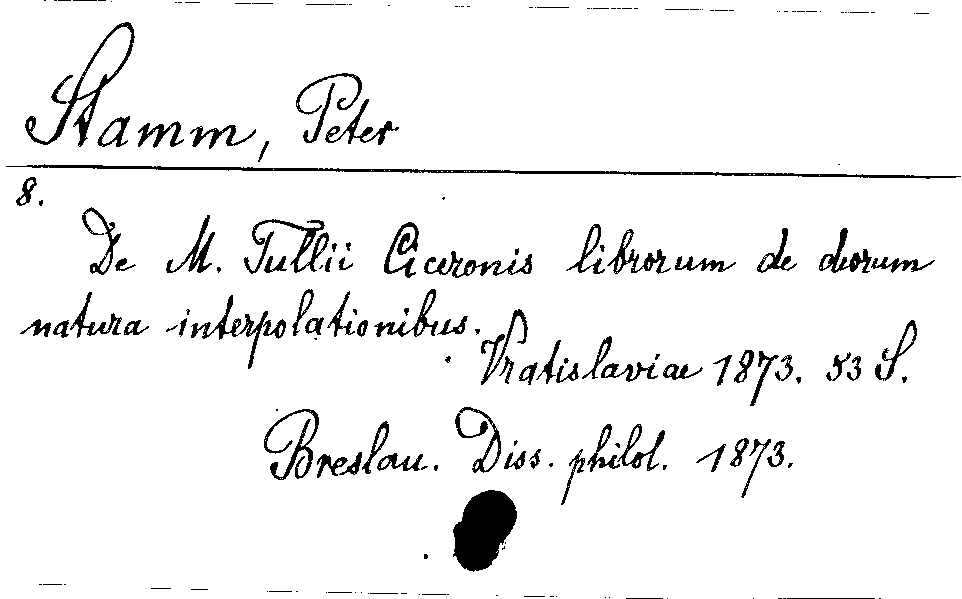 Stamm, Peter
8.
De M. Tullii Ciceronis librorum de deorum
natura interpolationibus.
Vratislaviae 1873. 53 S.
Breslau. Diss. philol. 1873.